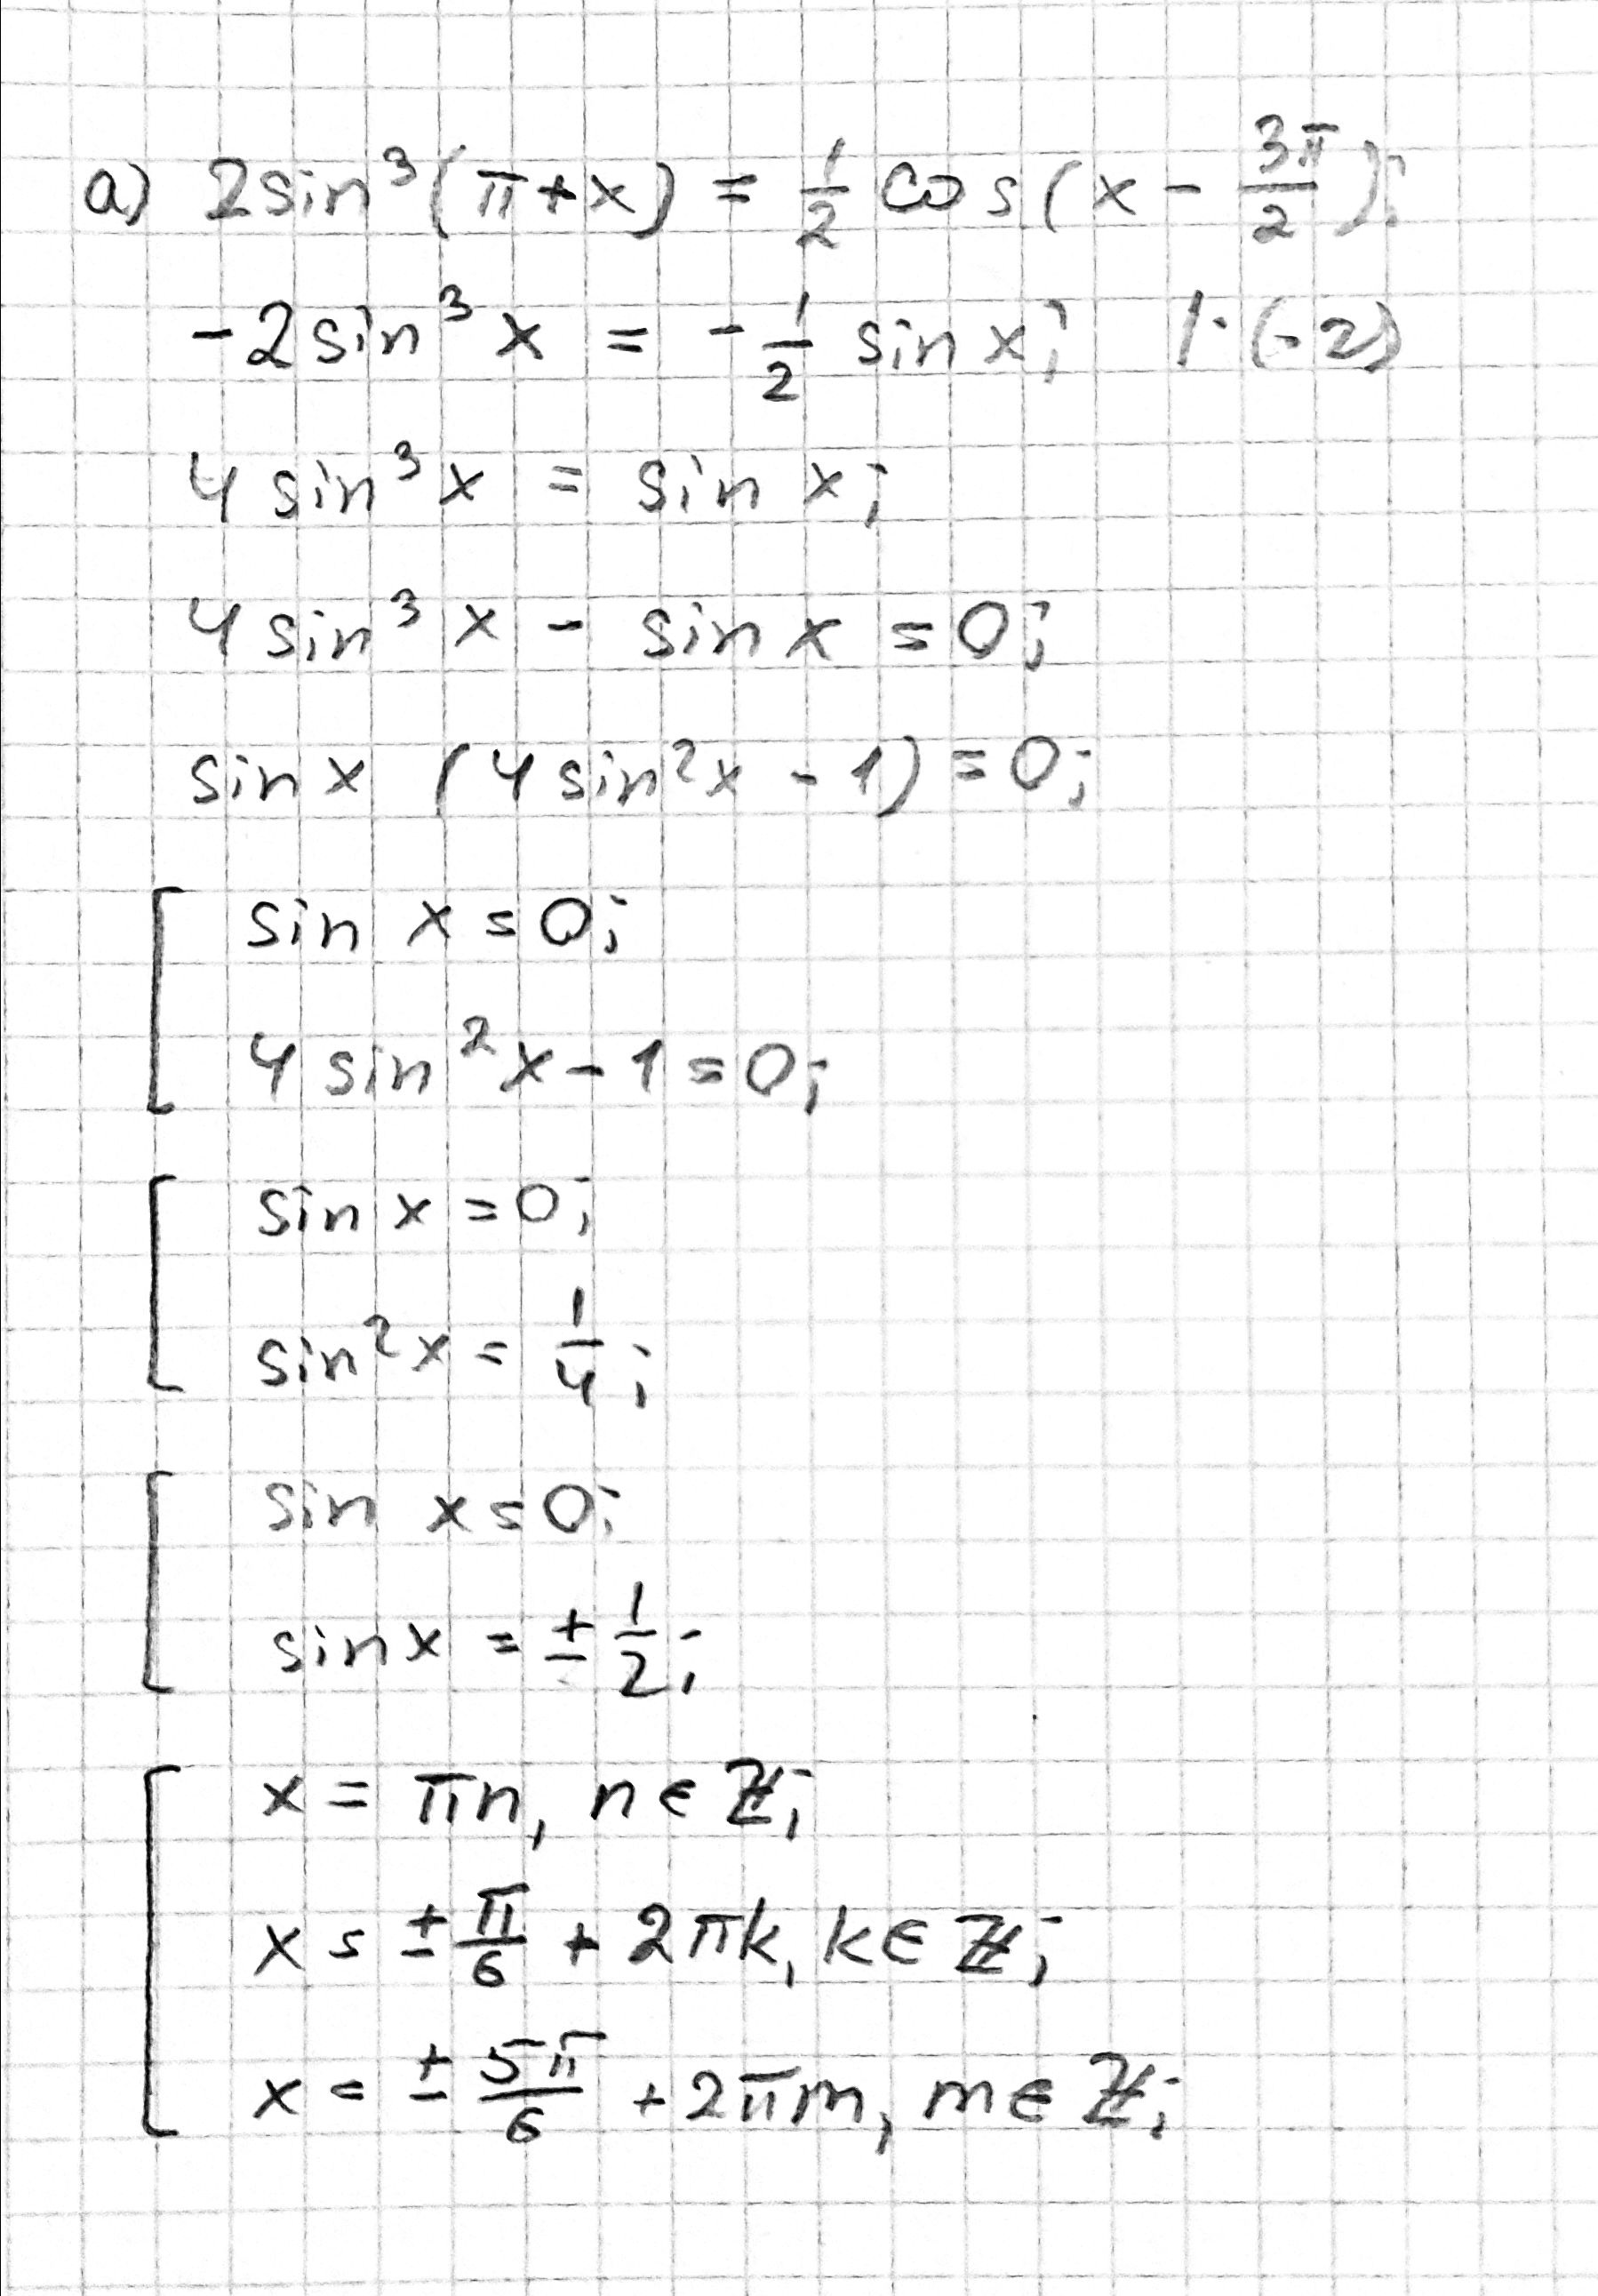 a) 2sin³(π+x) = 1/2 cos(x - 3π/2);
-2sin³x = -1/2 sin x; |·(-2)
4 sin³x = sin x;
4 sin³x - sin x = 0;
sin x (4 sin²x - 1) = 0;
[ sin x = 0;
4 sin²x - 1 = 0;
[ sin x = 0;
sin²x = 1/4;
[ sin x = 0;
sin x = ± 1/2;
[ x = πn, n ∈ ℤ;
x = ± π/6 + 2πk, k ∈ ℤ;
x = ± 5π/6 + 2πm, m ∈ ℤ;